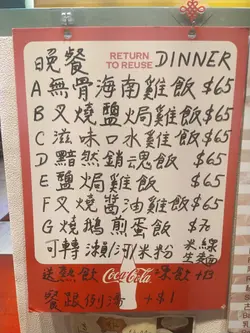 晚餐 RETURN TO REUSE DINNER
A 無骨海南雞飯 $65
B 叉燒鹽焗雞飯 $65
C 滋味口水雞飯 $65
D 黯然銷魂飯 $65
E 鹽焗雞飯 $65
F 叉燒醬油雞飯 $65
G 燒鵝煎蛋飯 $70
可轉瀨/河/米粉 米線 生菜面
送熱飲 Coca-Cola 凍飲 +$3
餐跟例湯 +$1